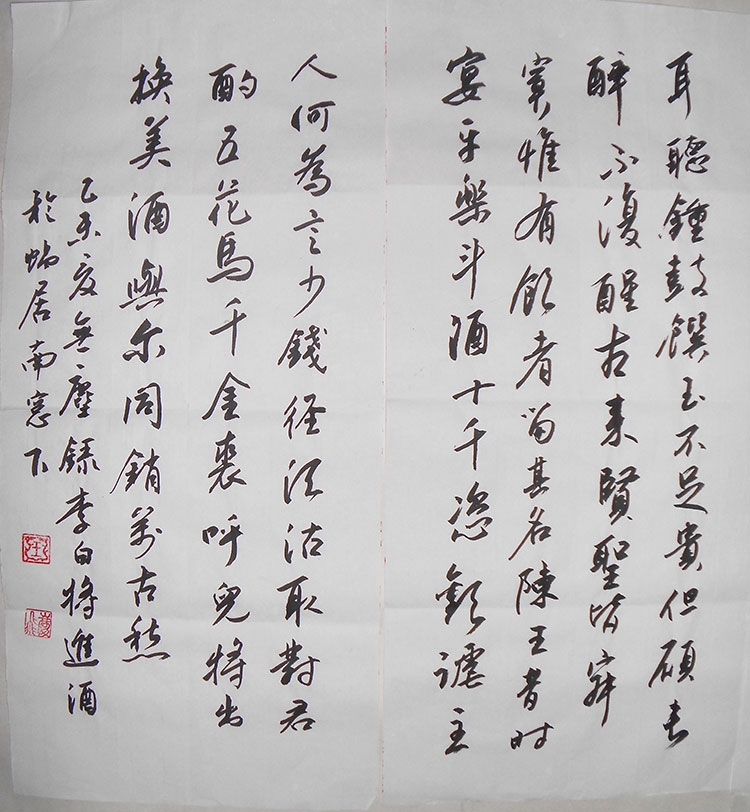 耳聽鍾鼓饌玉不足貴但願長
醉不復醒古來賢聖皆寂
寞惟有飲者留其名陳王昔時
宴平樂斗酒十千恣歡謔主
人何為言少錢徑須沽取對君
酌五花馬千金裘呼兒將出
換美酒與尔同銷萬古愁
乙未夏無塵錄李白將進酒
於蝸居南窓下